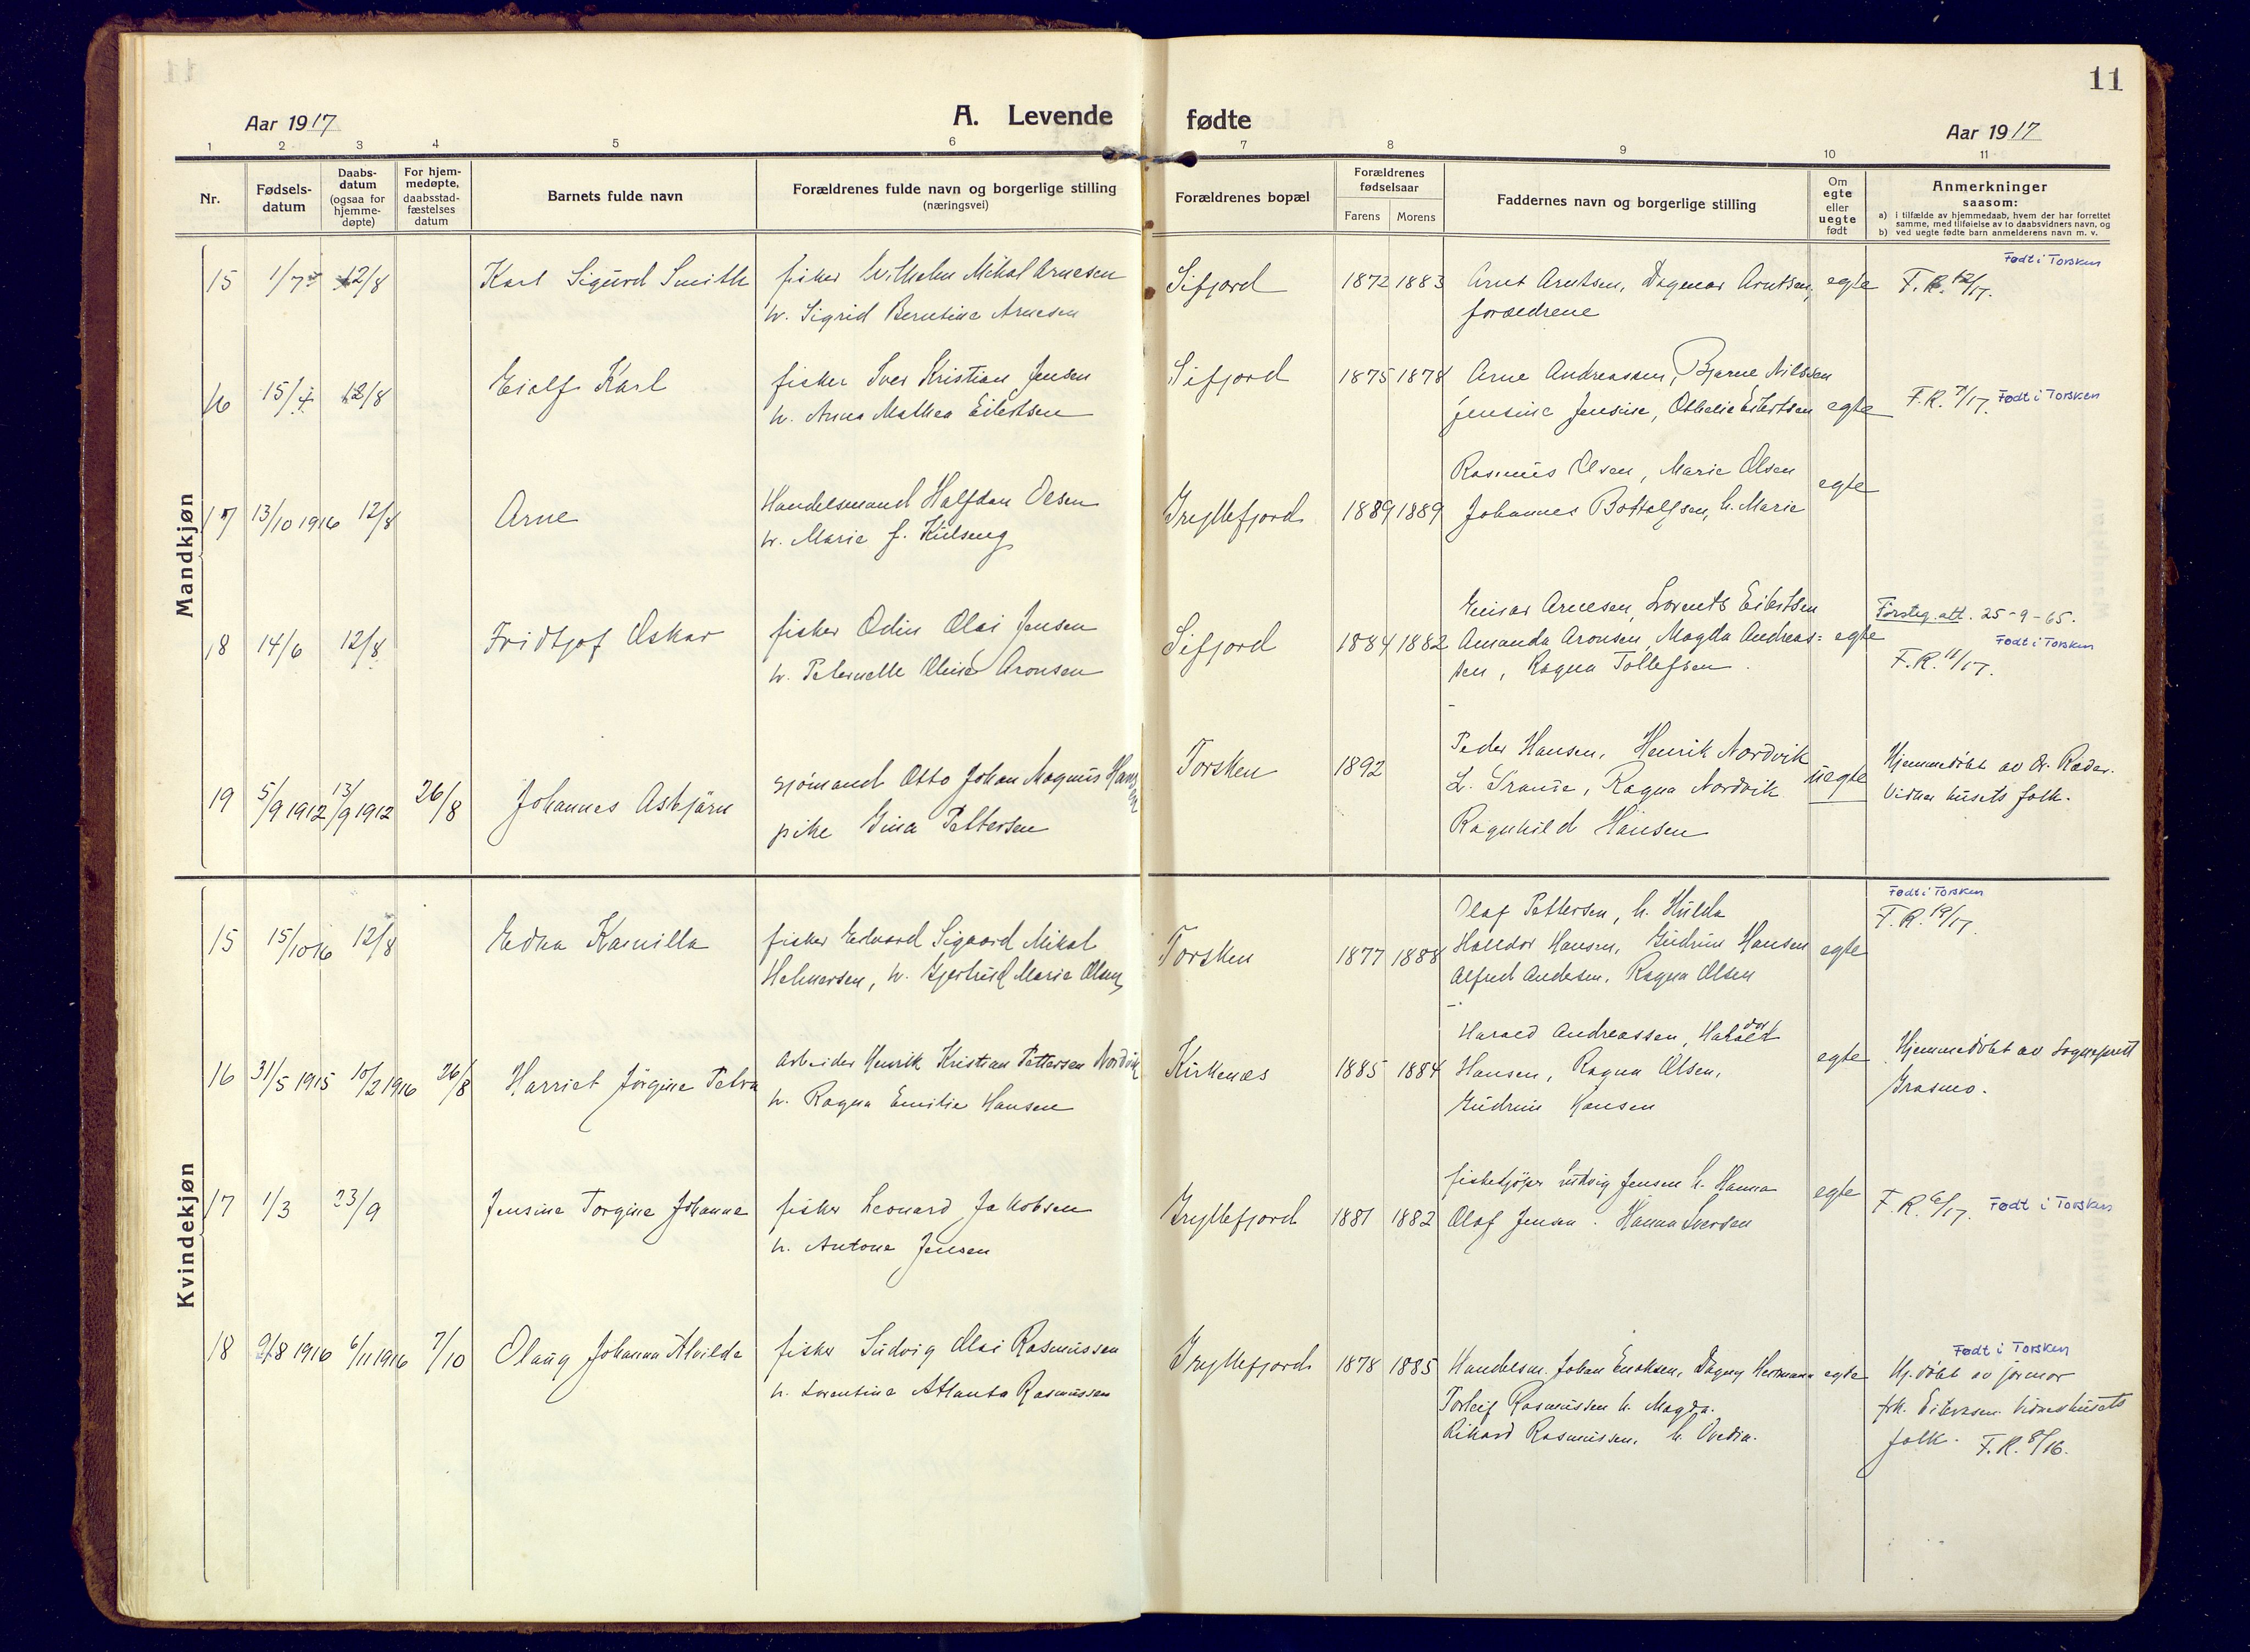 11
Aar 1917
A. Levende fødte
Aar 1917
1 2 3 4 5 6 7 8 9 10 11
Nr.
Fødsels-
datum
Daabs-
datum
(ogsaa for
hjemme-
døpte)
For hjem-
medøpte,
daabsstad-
fæstelses
datum
Barnets fulde navn
Forældrenes fulde navn og borgerlige stilling
(næringsvei)
Forældrenes bopæl
Forældrenes
fødselsaar
Farens Morens
Faddernes navn og borgerlige stilling
Om
egte
eller
uegte
født
Anmerkninger
saasom:
a) i tilfælde av hjemmedaab, hvem der har forrettet
samme, med tilføielse av to daabsvidners navn, og
b) ved uegte fødte barn anmelderens navn m. v.
Mandkjøn
15 1/7 12/8 Karl Sigurd Smith
fisker Wilhelm Mikal Arnesen
h. Sigrid Berntine Arnesen
Sifjord 1872 1883
Arnt Arntsen, Dagmar Arntsen,
forældrene
egte
Født i Torsken
F.R. 12/17.
16 15/4 12/8 Eialf Karl
fisker Iver Kristian Jensen
h. Anna Mathea Eilertsen
Sifjord 1875 1878
Arne Andreassen, Bjarne Nilssen
Jensine Jensine, Othelie Eilertsen
egte
F.R. 7/17. Født i Torsken
17 13/10 1916 12/8 Arne
Handelsmand Halfdan Olsen
h. Marie f. Kulseng
Gryllefjord 1889 1889
Rasmus Olsen, Marie Olsen
Johannes Bottolfsen, h. Marie
egte
18 14/6 12/8 Fridtjof Oskar
fisker Odin Olai Jensen
h. Peternelle Oline Aronsen
Sifjord 1884 1882
Einar Arnesen, Lorents Eilertsen
Amanda Aronsen, Magda Andreas=
sen, Ragna Tollefsen.
egte
Første g. att. 25-9-65.
Født i Torsken
F.R. 11/17.
19 5/9 1912 13/9 1912 26/8 Johannes Asbjörn
sjömand Otto Johan Magnus Hansen
pike Gina Pettersen
Torsken 1892
Peder Hansen, Henrik Nordvik
L. Sranie, Ragna Nordvik
Ragnhild Hansen
uegte
Hjemmedöbt av Dr. Ræder.
Vidner husets folk.
Kvindekjøn
15 15/10 16 12/8 Edna Kamilla
fisker Edvard Sigaard Mikal
Helmersen, h. Gjertrud Marie Olsen
Torsken 1877 1888
Olaf Pettersen, h. Hulda
Halldor Hansen, Gudrun Hansen
Alfred Andersen, Ragna Olsen
egte
Født i Torsken
F.R. 19/17.
16 31/5 1915 10/2 1916 26/8 Harriet Jörgine Petra
Arbeider Henrik Kristian Pettersen Nordvik
h. Ragna Emilie Hansen
Kirkenæs 1885 1884
Harald Andreassen, Haldor
Hansen, Ragna Olsen,
Gudrun Hansen
egte
Hjemmedöbt av Sogneprest
Grasmo.
17 1/3 23/9 Jensine Torgine Johanne
fisker Leonard Jakobsen
h. Antona Jensen
Gryllefjord 1881 1882
fiskekjöper Ludvig Jensen h. Hanna
Olaf Jensen. Hanna Iversen
egte
F.R. 6/17. Født i Torsken
18 9/8 1916 6/11 1916 7/10 Olaug Johanna Alvilde
fisker Ludvig Olai Rasmussen
h. Lorentine Atlanta Rasmussen
Gryllefjord 1878 1885
Handelsm. Johan Enoksen, Dagny Hermann
Torleif Rasmussen h. Magda.
Rikard Rasmussen, h. Ovedia.
egte
Født i Torsken
Hj. döbt av jormor
frk. Eilertsen. Vidner husets
folk. F.R. 8/16.